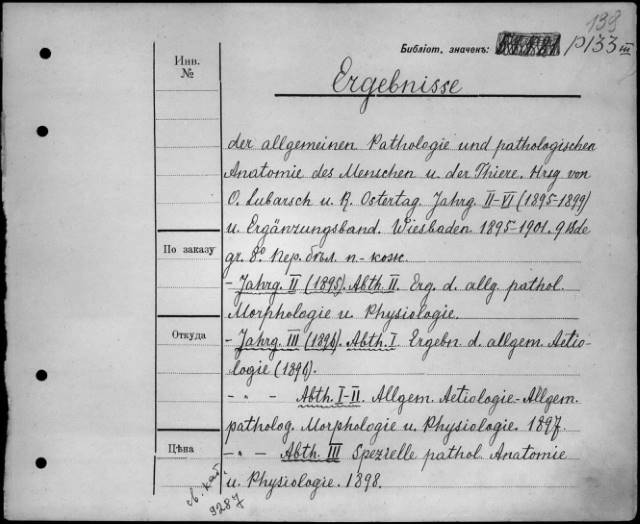 139
Библіот. значенъ: P133 III
Инв.
№
Ergebnisse
der allgemeinen Pathologie und pathologischen
Anatomie des Menschen u. der Thiere. Hrsg von
O. Lubarsch u. R. Ostertag. Jahrg. II-VI (1895-1899)
u. Ergänzungsband. Wiesbaden 1895-1901. 9 Bde
По заказу
gr. 8º. Пер. бѣл. п.-кож.
- Jahrg. II (1895). Abth. II. Erg. d. allg. pathol.
Morphologie u. Physiologie.
Откуда
- Jahrg. III (1896). Abth. I. Ergebn. d. allgem. Aetio-
logie (1896).
- " - Abth. I-II. Allgem. Aetiologie-Allgem.
patholog. Morphologie u. Physiologie. 1897.
Цѣна
- " - Abth. III Spezielle pathol. Anatomie
u. Physiologie. 1898.
св. кат.
9287